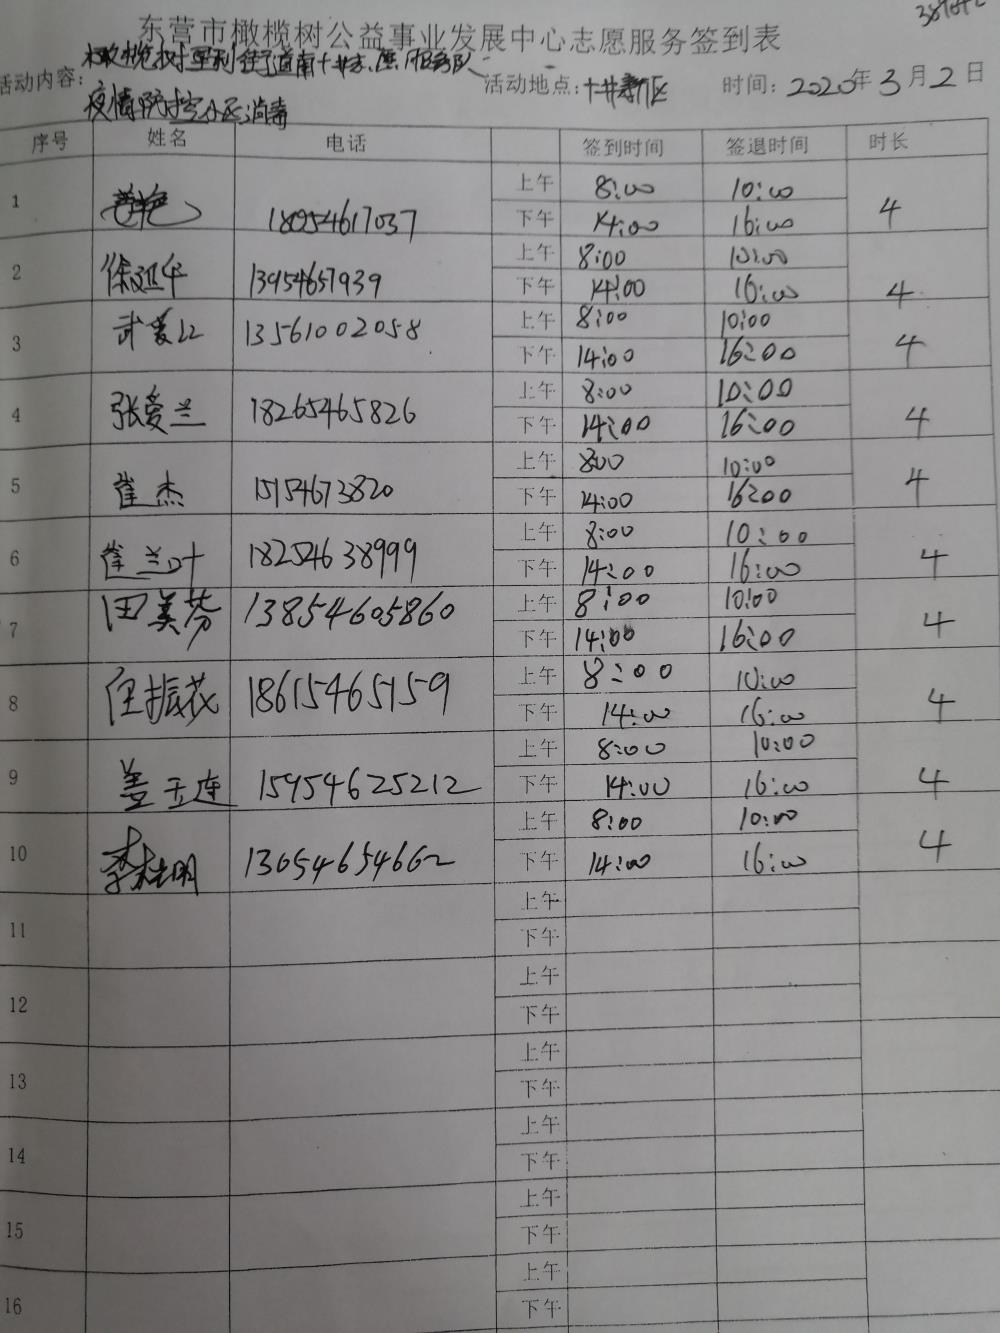 东营市橄榄树公益事业发展中心志愿服务签到表
活动内容: 橄榄树垦利街道南十井志愿服务队
疫情防控小区消毒
活动地点: 十井新区 时间: 2020年3月2日
序号 姓名 电话 签到时间 签退时间 时长
1 18054617037 上午 8:00 10:00 4
下午 14:00 16:00
2 徐延华 13954657939 上午 8:00 10:00 4
下午 14:00 16:00
3 13561002058 上午 8:00 10:00 4
下午 14:00 16:00
4 张爱兰 18265465826 上午 8:00 10:00 4
下午 14:00 16:00
5 崔杰 15154673820 上午 8:00 10:00 4
下午 14:00 16:00
6 崔兰叶 18254638999 上午 8:00 10:00 4
下午 14:00 16:00
7 田美芬 13854605860 上午 8:00 10:00 4
下午 14:00 16:00
8 任振花 18615465159 上午 8:00 10:00 4
下午 14:00 16:00
9 盖玉连 15954625212 上午 8:00 10:00 4
下午 14:00 16:00
10 李桂明 13054654662 上午 8:00 10:00 4
下午 14:00 16:00
11 上午
下午
12 上午
下午
13 上午
下午
14 上午
下午
15 上午
下午
16 上午
下午